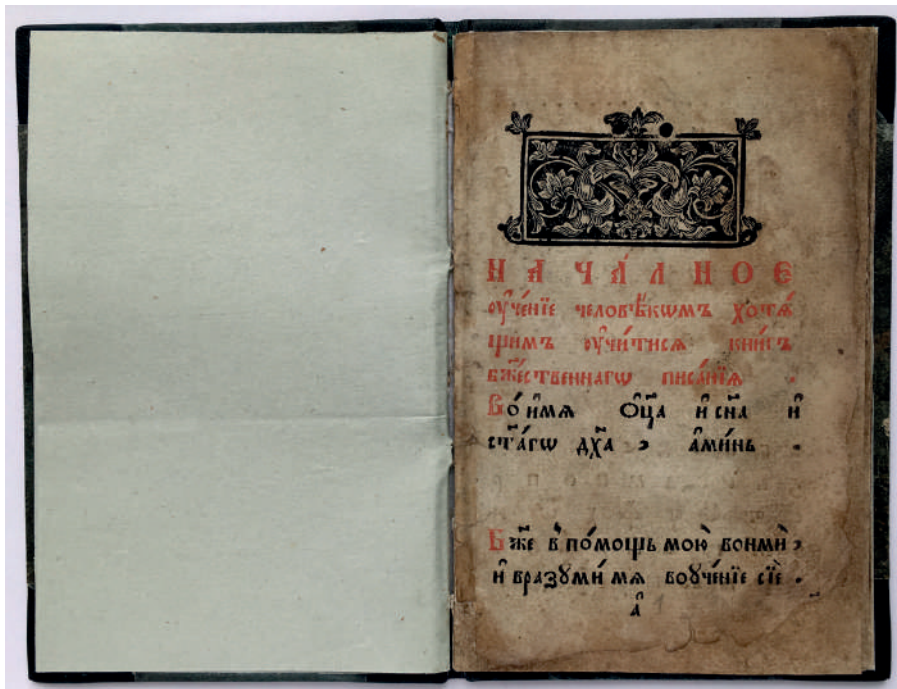 НАЧА́ЛНОЕ
ᲂу҆че́нїе человѣ́кѡмъ хотѧ́
щимъ ᲂу҆чи́тисѧ кни́гъ
бж҃е́ственнагѡ писа́нїѧ .
Во́ и҆мѧ Ѻ҆ц҃а и҆ сн҃а и҆
ст҃а́гѡ дх҃а , а҆ми́нь .
Бж҃е в̾ по́мощь мою̀ вонмѝ ,
и҆ вразꙋми́ мѧ воꙋче́нїе сїѐ .
а҆